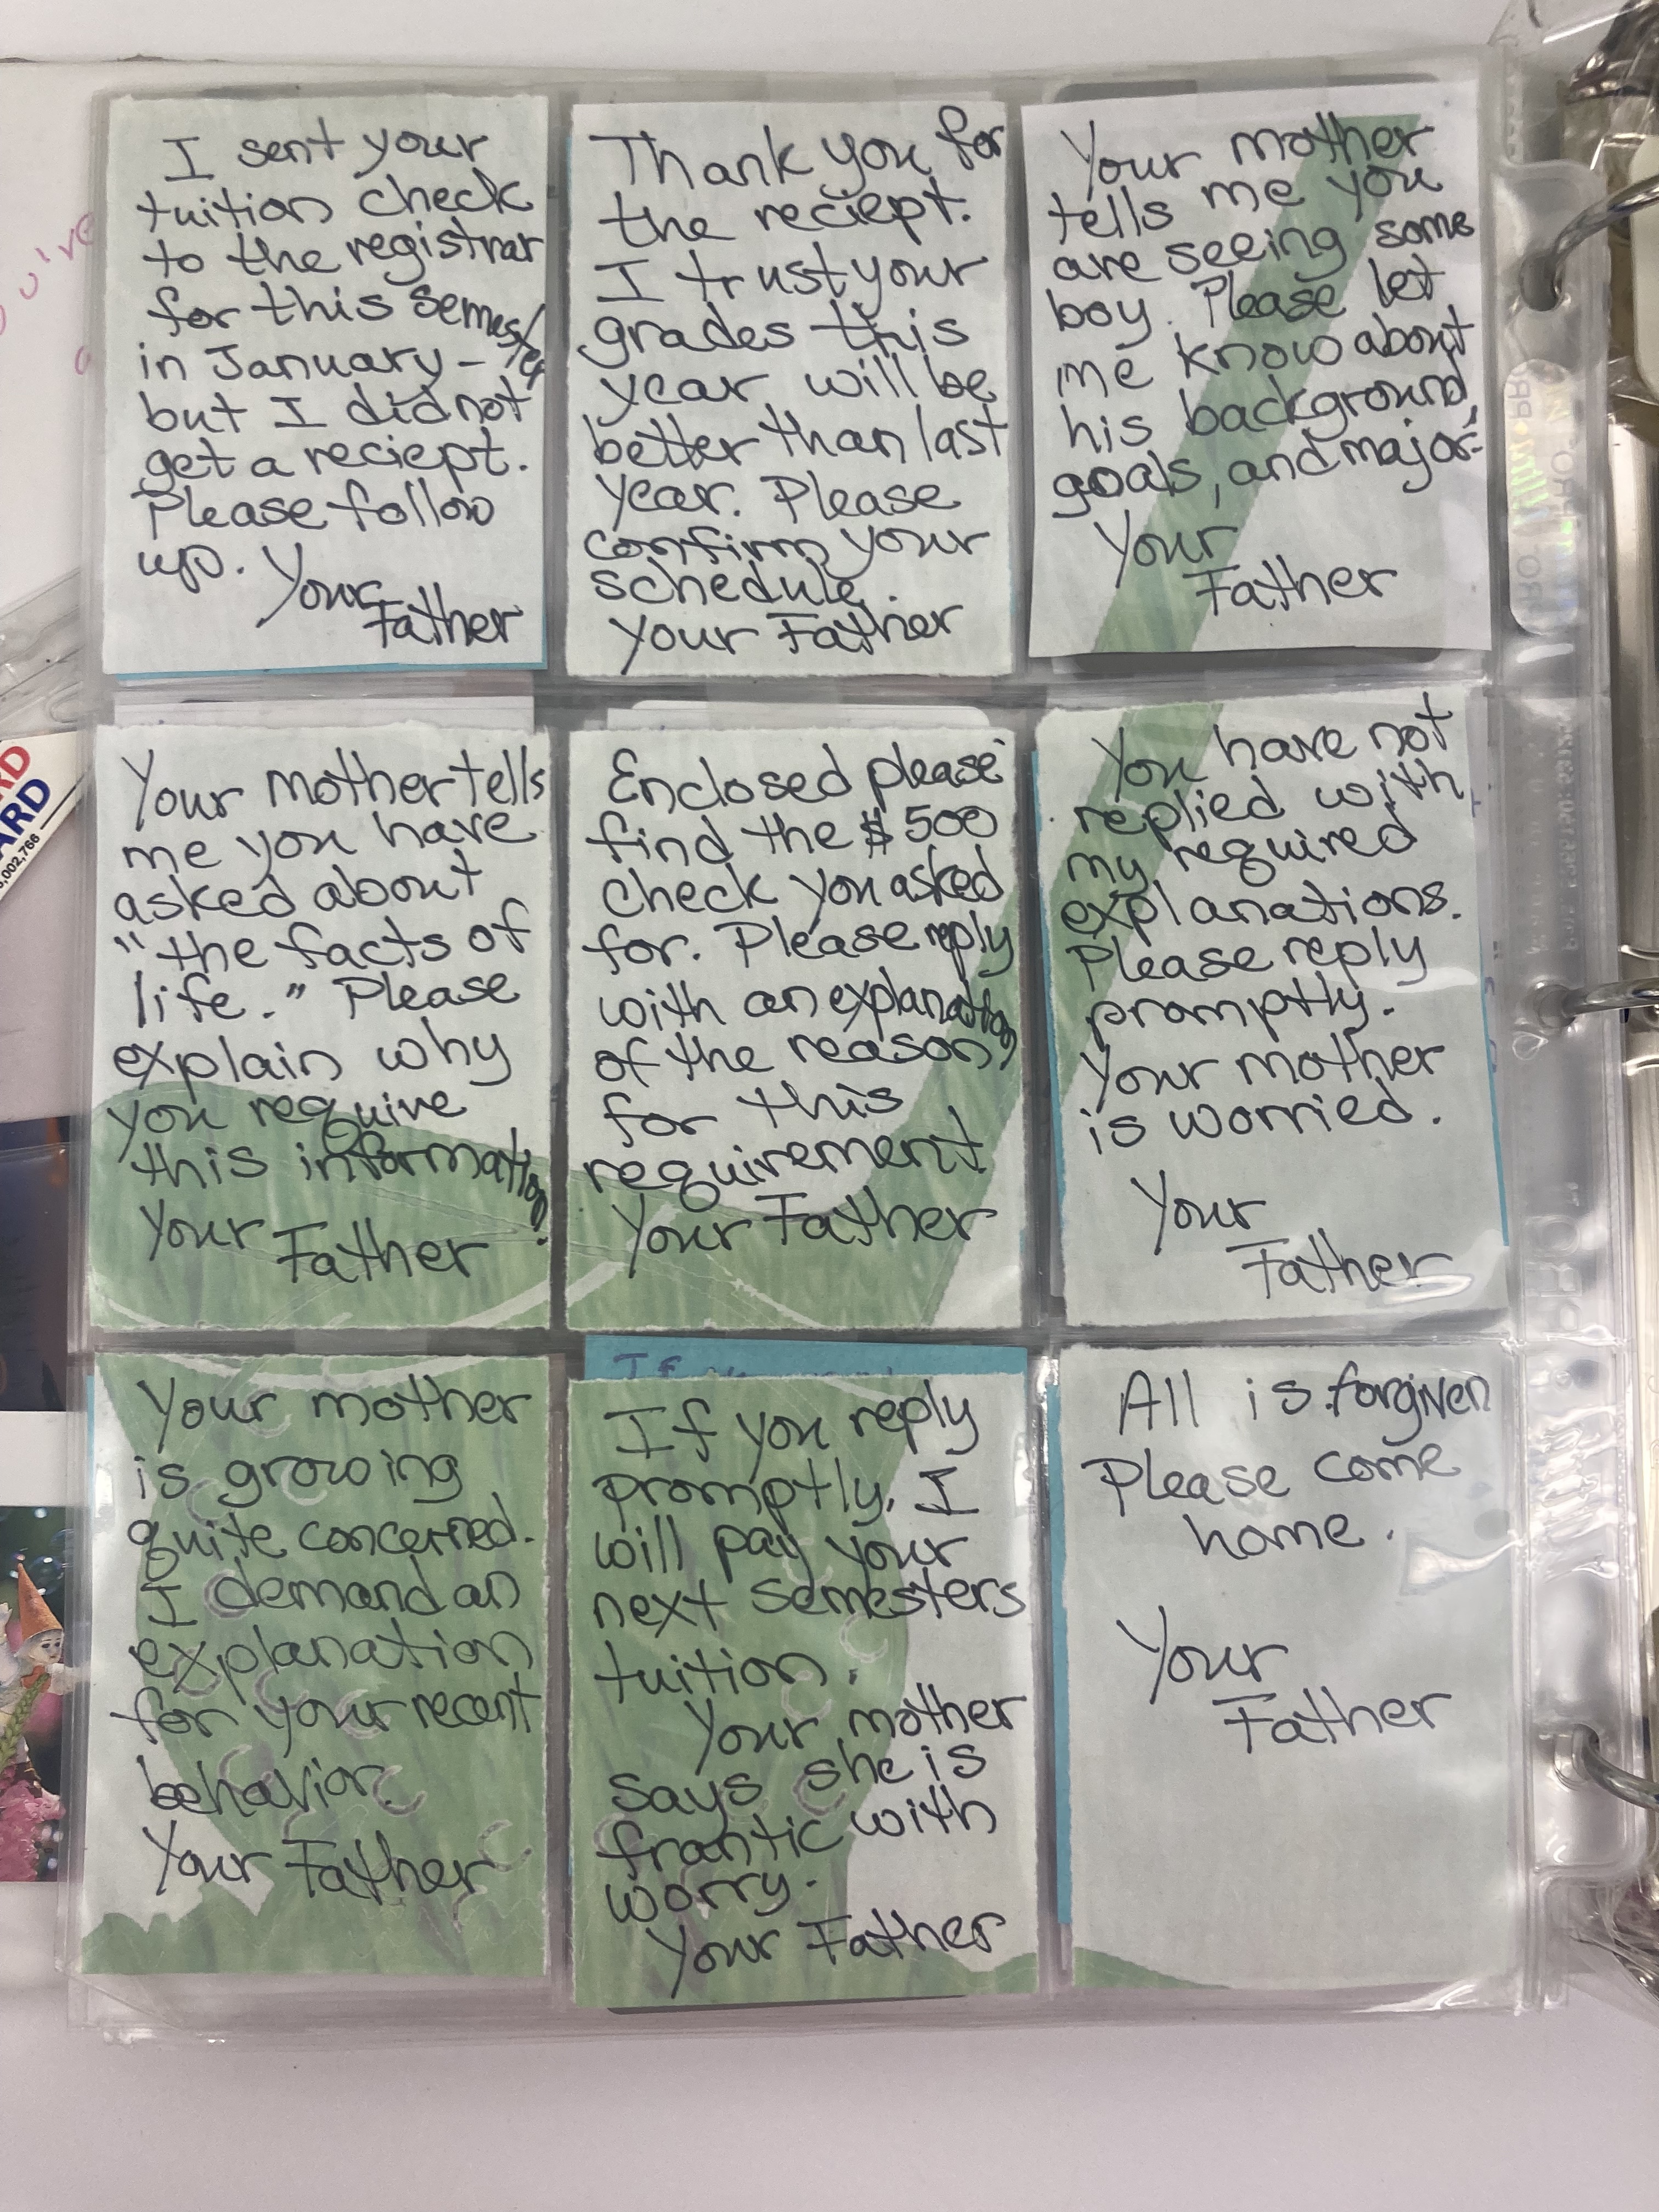 I sent your
tuition check
to the registrar
for this semester
in January –
but I did not
get a reciept.
Please follow
up. Your
Father
Thank you for
the reciept.
I trust your
grades this
year will be
better than last
year. Please
confirm your
schedule.
Your Father
Your mother
tells me you
are seeing some
boy. Please let
me know about
his background,
goals, and major.
Your
Father
Your mother tells
me you have
asked about
"the facts of
life." Please
explain why
you require
this information.
Your Father
Enclosed please
find the $500
check you asked
for. Please reply
with an explanation
of the reason
for this
requirement
Your Father
You have not
replied with
my required
explanations.
Please reply
promptly.
Your mother
is worried.
Your
Father
Your mother
is growing
quite concerned.
I demand an
explanation
for your recent
behavior.
Your Father
If
If you reply
promptly, I
will pay your
next semesters
tuition.
Your mother
says she is
frantic with
worry.
Your Father
All is forgiven
Please come
home.
Your
Father
RD
ARD